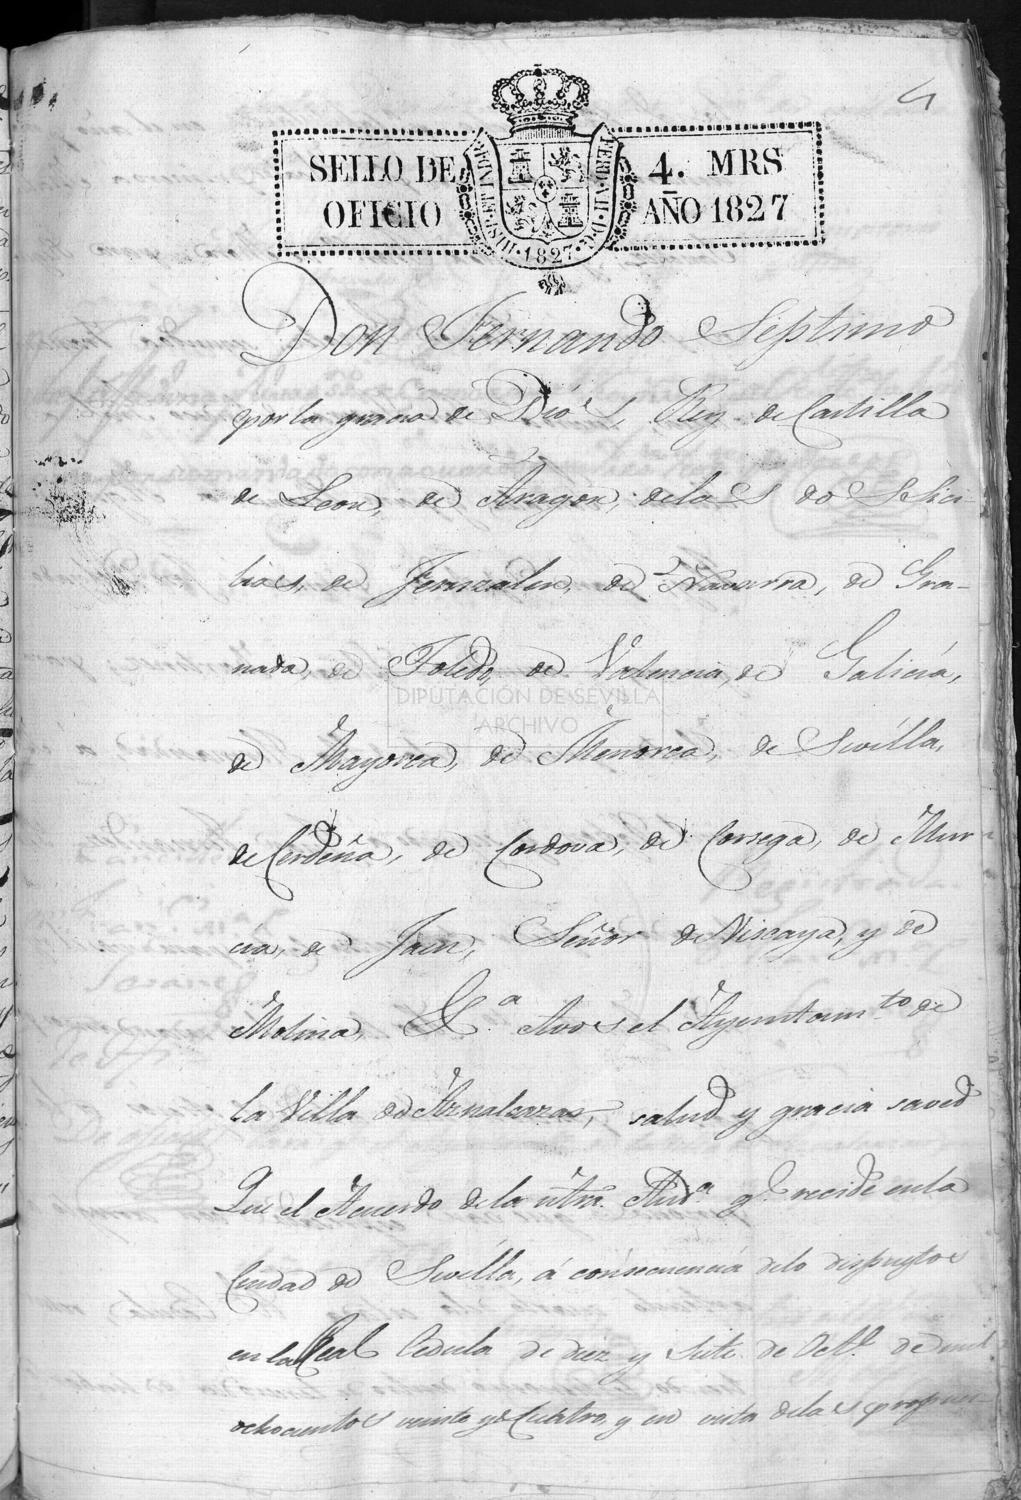 4
SELLO DE 4. MRS
OFICIO AÑO 1827
HISP. ET IND. R. FERD. VII. D. G. 1827
Don Fernando Septimo
por la gracia de Dios, Rey de Castilla
de Leon, de Aragon, de las dos Sici-
lias, de Jeruzalen, de Navarra, de Gra-
nada, de Toledo, de Valencia, de Galicia,
DIPUTACIÓN DE SEVILLA
ARCHIVO
de Mayorca, de Menorca, de Sevilla,
de Cerdeña, de Cordova, de Corsega, de Mur
cia, de Jaen, Señor de Viscaya, y de
Molina, &.ª Avos el Ayuntam.to de
la Villa de Aznalcazar, salud y gracia saved
Que el Acuerdo de la ntrã. Aud.ª q.e recide en la
Ciudad de Sevilla, á consecuencia delo dispuesto
en la Real Cedula de diez y siete de Oct.e de mil
ochocientos veinte y Cuatro, y en vista delas propues-